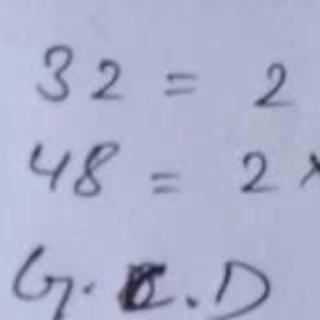 32 = 2
48 = 2 ×
G.C.D